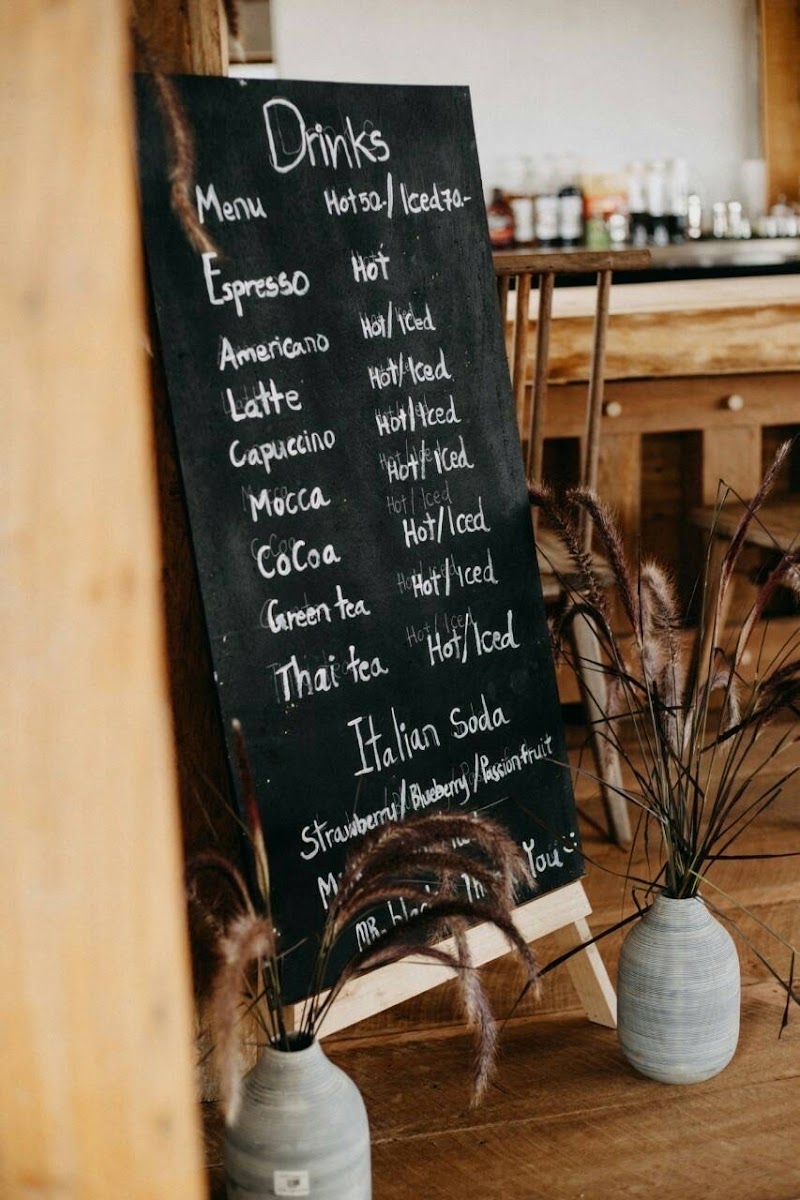 Drinks
Menu Hot 50.-/Iced 70.-
Espresso Hot
Americano Hot/Iced
Latte Hot/Iced
Capuccino Hot/Iced
Mocca Hot/Iced
CoCoa Hot/Iced
Green tea Hot/Iced
Thai tea Hot/Iced
Italian Soda
Strawberry/Blueberry/Passionfruit
You :)
MR.